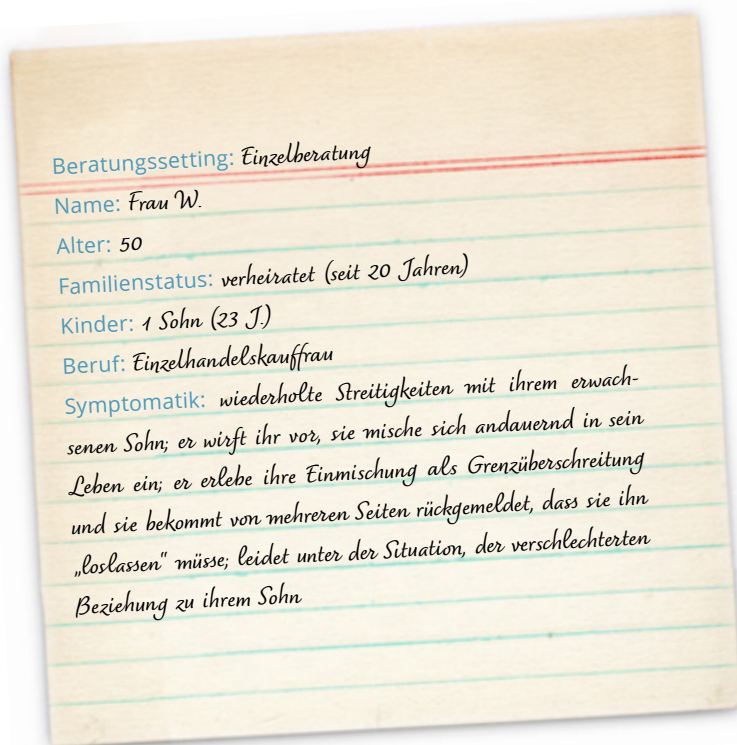 Beratungssetting: Einzelberatung
Name: Frau W.
Alter: 50
Familienstatus: verheiratet (seit 20 Jahren)
Kinder: 1 Sohn (23 J.)
Beruf: Einzelhandelskauffrau
Symptomatik: wiederholte Streitigkeiten mit ihrem erwach-
senen Sohn; er wirft ihr vor, sie mische sich andauernd in sein
Leben ein; er erlebe ihre Einmischung als Grenzüberschreitung
und sie bekommt von mehreren Seiten rückgemeldet, dass sie ihn
„loslassen“ müsse; leidet unter der Situation, der verschlechterten
Beziehung zu ihrem Sohn